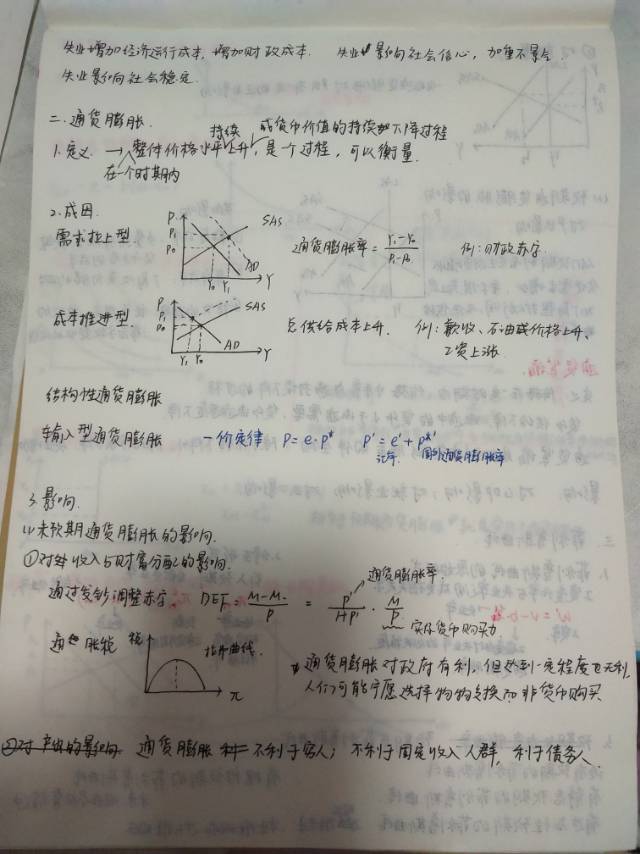 失业增加经济运行成本,增加财政成本. 失业影响社会信心,加重不景气.
失业影响社会稳定.
二.通货膨胀.
持续 或货币价值的持续下降过程
1.定义. → 整体价格水平上升,是一个过程,可以衡量.
在一个时期内
2.成因.
需求拉上型
P P₁ P₀ SAS AD Y₀ Y₁ Y
通货膨胀率 = (Y₁-Y₀)/(P₁-P₀) 例:财政赤字.
成本推进型.
P P₁ P₀ SAS AD Y₁ Y₀ Y
总供给成本上升. 例:歉收、石油或价格上升、
工资上涨.
结构性通货膨胀
输入型通货膨胀 一价定律 P=e·P* P'=e'+P*'
国外通货膨胀率
3.影响.
(1)未预期通货膨胀的影响.
①对收入与财富分配的影响.
通货膨胀率.
通过发钞调整赤字. DEF=(M-M₋)/P = P'/(1+P')·M/P
实际货币购买力
通胀税 税 拉弗曲线. π
通货膨胀对政府有利,但达到一定程度也无利,
人们可能宁愿选择物物交换而非货币购买
②对产出的影响 通货膨胀不利于穷人;不利于固定收入人群,利于债务人.